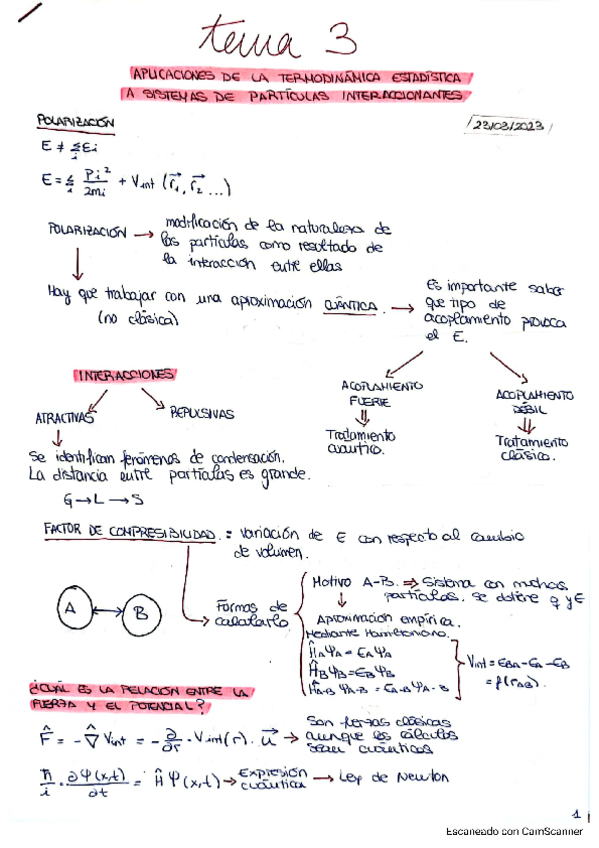 tema 3
APLICACIONES DE LA TERMODINÁMICA ESTADÍSTICA
A SISTEMAS DE PARTÍCULAS INTERACCIONANTES
POLARIZACIÓN
23/03/2023
E ≠ Σ_i Ei
E = Σ_i Pi²/2mi + Vint (r⃗₁, r⃗₂ ...)
POLARIZACIÓN → modificación de la naturaleza de
las partículas como resultado de
la interacción entre ellas
Hay que trabajar con una aproximación CUÁNTICA. →
(no clásica)
Es importante saber
que tipo de
acoplamiento provoca
el E.
INTERACCIONES
ATRACTIVAS
REPULSIVAS
ACOPLAMIENTO
FUERTE
⇓
Tratamiento
cuántico.
ACOPLAMIENTO
DÉBIL
⇓
Tratamiento
clásico.
Se identifican fenómenos de condensación.
La distancia entre partículas es grande.
G → L → S
FACTOR DE COMPRESIBILIDAD. = variación de E con respecto al cambio
de volumen.
A ↔ B
Formas de
calcularlo
Motivo A-B. ⇒ Sistema con muchas
partículas. Se obtiene q y E
Aproximación empírica.
Mediante Hamiltoniano.
ĤAΨA = EAΨA
ĤBΨB = EBΨB
ĤA-B ΨA-B = EA-BΨA-B
Vint = EBA - EA - EB
= f(rAB).
¿CUÁL ES LA RELACIÓN ENTRE LA
FUERZA Y EL POTENCIAL?
F̂ = - ∇̂ Vint = - ∂/∂r · Vint(r). u⃗ →
Son fuerzas clásicas
aunque los cálculos
sean cuánticos
ħ/i · ∂Ψ(x,t)/∂t = Ĥ Ψ(x,t) → Expresión cuántica → Ley de Newton
1
Escaneado con CamScanner